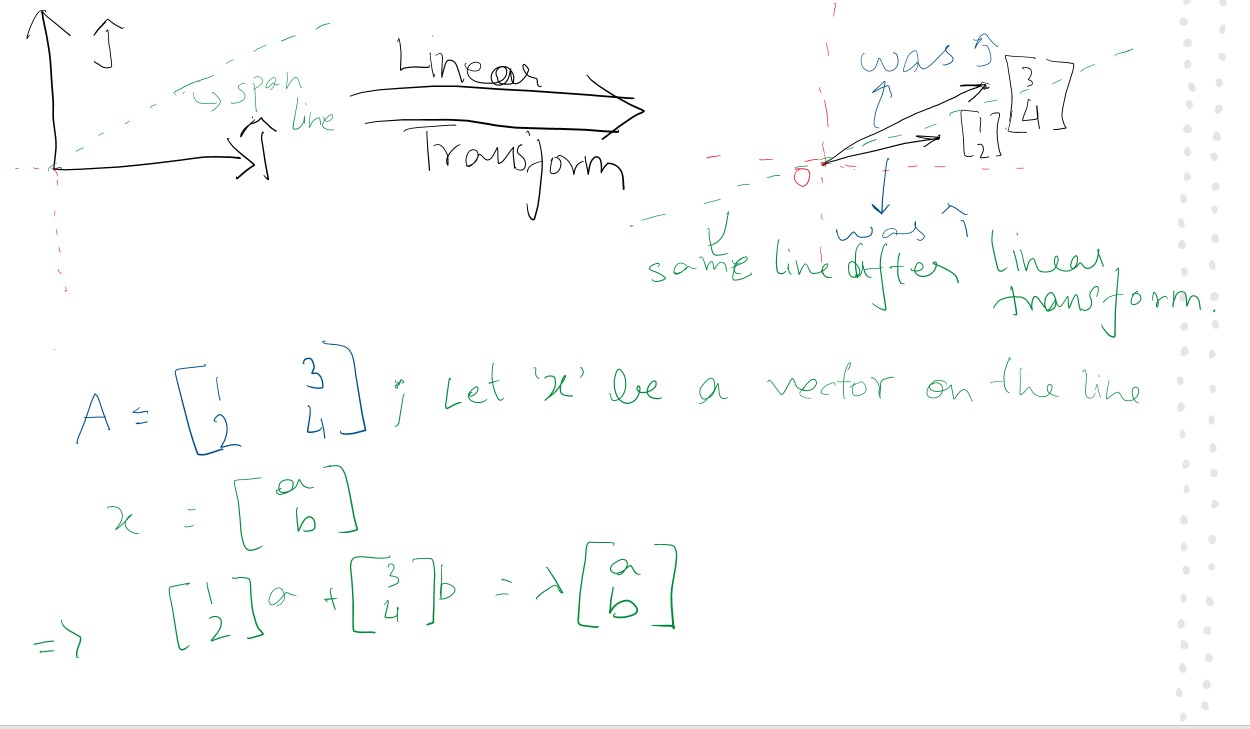 ĵ
span
line
ĵ
Linear
Transform
was ĵ
[3 4]
[1 2]
O
was î
same line after linear
transform.
A = [1 3 2 4] ; Let 'x' be a vector on the line
x = [a b]
=> [1 2] a + [3 4] b = λ [a b]